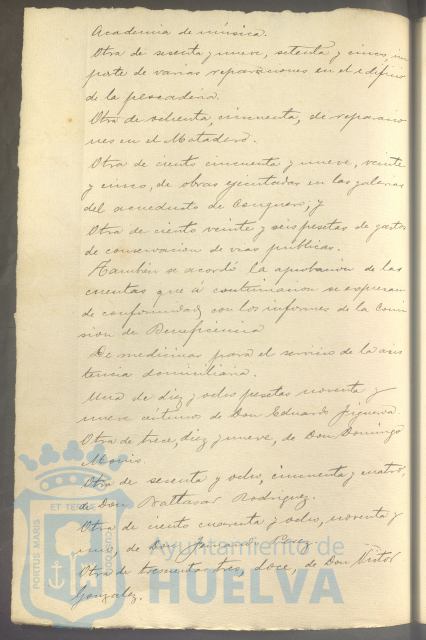 Academia de música.
Otra de sesenta y nueve, setenta y cinco, im
porte de varias reparaciones en el edificio
de la pescaderia.
Otra de ochenta, cincuenta, de reparacio
nes en el Matadero.
Otra de ciento cincuenta y nueve, veinte
y cinco, de obras ejecutadas en las galerias
del acueducto de Conquero; y
Otra de ciento veinte y seis pesetas de gastos
de conservacion de vias publicas.
Tambien se acordó la aprobacion de las
cuentas que á continuacion se expresan
de conformidad con los informes de la Comi
sion de Beneficencia
De medicinas para el servicio de la asis
tencia domiciliaria.
Una de diez y ocho pesetas noventa y
nueve céntimos de Don Eduardo Figueroa.
Otra de trece, diez y nueve, de Don Domingo
Otra de sesenta y ocho, cincuenta y cuatro,
de Don Baltasar Rodriguez.
Otra de ciento cuarenta y ocho, noventa y
cinco, de Don Fernando Perez.
Otra de treinta y tres, doce, de Don Victor
Gonzalez.
PORTUS MARIS ET TERRAE CUSTODIA
Ayuntamiento de
HUELVA